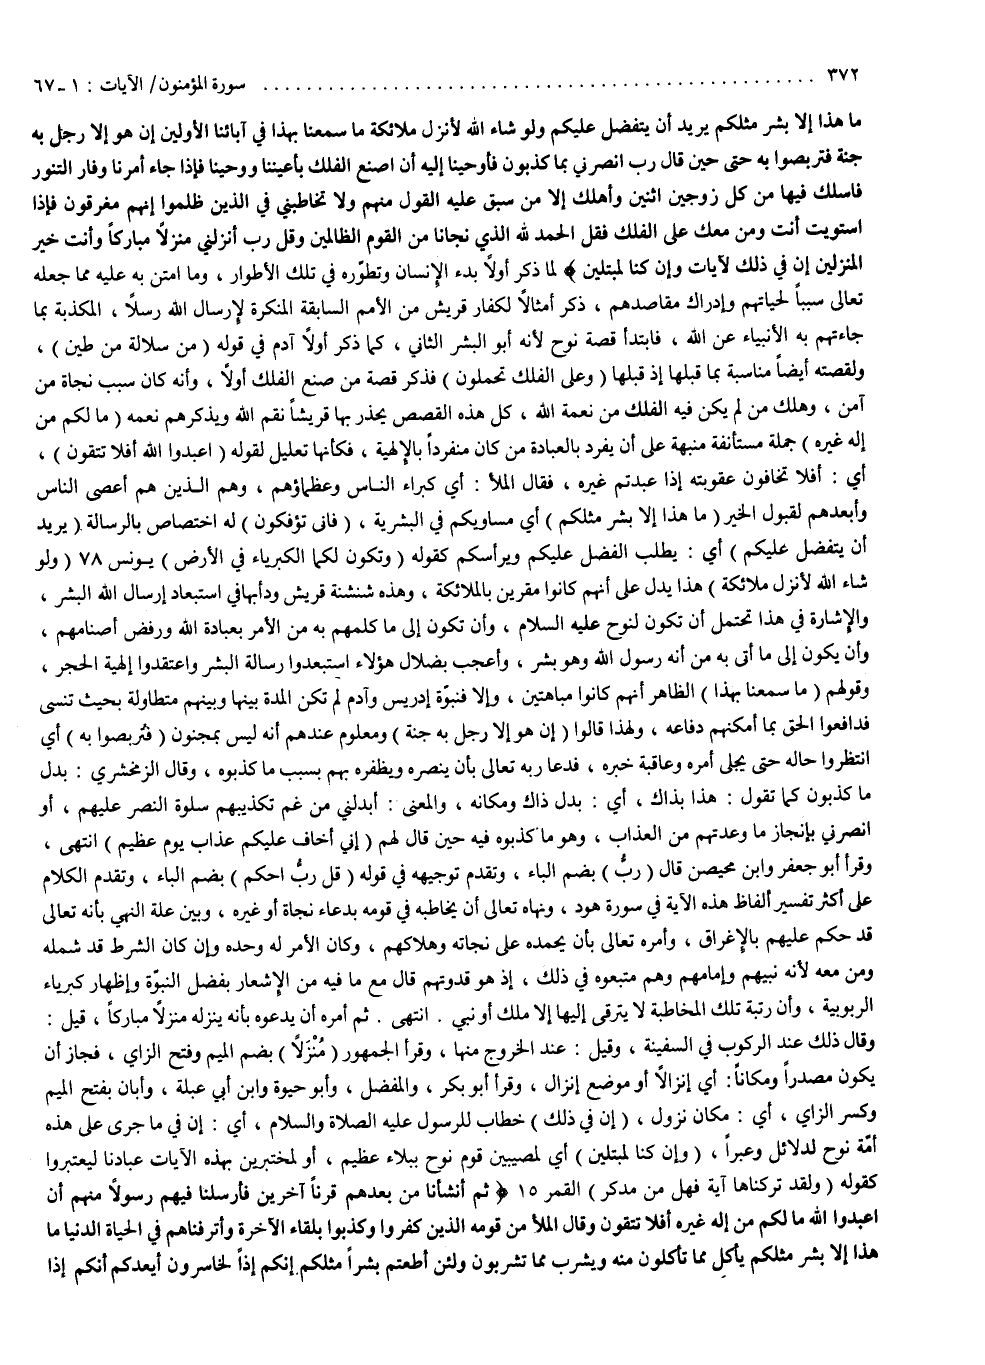 ٣٧٢ ................................................ سورة المؤمنون/ الآيات : ١ -٦٧
ما هذا إلا بشر مثلكم يريد أن يتفضل عليكم ولو شاء الله لأنزل ملائكة ما سمعنا بهذا في آبائنا الأولين إن هو إلا رجل به
جنة فتربصوا به حتى حين قال رب انصرني بما كذبون فأوحينا إليه أن اصنع الفلك بأعيننا ووحينا فإذا جاء أمرنا وفار التنور
فاسلك فيها من كل زوجين اثنين وأهلك إلا من سبق عليه القول منهم ولا تخاطبني في الذين ظلموا إنهم مغرقون فإذا
استويت أنت ومن معك على الفلك فقل الحمد لله الذي نجانا من القوم الظالمين وقل رب أنزلني منزلاً مباركاً وأنت خير
المنزلين إن في ذلك لآيات وإن كنا لمبتلين ﴾ لما ذكر أولاً بدء الإنسان وتطوّره في تلك الأطوار ، وما امتن به عليه مما جعله
تعالى سبباً لحياتهم وإدراك مقاصدهم ، ذكر أمثالاً لكفار قريش من الأمم السابقة المنكرة لإرسال الله رسلاً ، المكذبة بما
جاءتهم به الأنبياء عن الله ، فابتدأ قصة نوح لأنه أبو البشر الثاني ، كما ذكر أولاً آدم في قوله ( من سلالة من طين ) ،
ولقصته أيضاً مناسبة بما قبلها إذ قبلها ( وعلى الفلك تحملون ) فذكر قصة من صنع الفلك أولاً ، وأنه كان سبب نجاة من
آمن ، وهلك من لم يكن فيه الفلك من نعمة الله ، كل هذه القصص يحذر بها قريشاً نقم الله ويذكرهم نعمه ( ما لكم من
إله غيره ) جملة مستأنفة منبهة على أن يفرد بالعبادة من كان منفرداً بالإلهية ، فكأنها تعليل لقوله ( اعبدوا الله أفلا تتقون ) ،
أي : أفلا تخافون عقوبته إذا عبدتم غيره ، فقال الملأ : أي كبراء الناس وعظماؤهم ، وهم الذين هم أعصى الناس
وأبعدهم لقبول الخير ( ما هذا إلا بشر مثلكم ) أي مساويكم في البشرية ، ( فانى تؤفكون ) له اختصاص بالرسالة ( يريد
أن يتفضل عليكم ) أي : يطلب الفضل عليكم ويرأسكم كقوله ( وتكون لكما الكبرياء في الأرض ) يونس ٧٨ ( ولو
شاء الله لأنزل ملائكة ) هذا يدل على أنهم كانوا مقرين بالملائكة ، وهذه شنشنة قريش ودأبهافي استبعاد إرسال الله البشر ،
والإشارة في هذا تحتمل أن تكون لنوح عليه السلام ، وأن تكون إلى ما كلمهم به من الأمر بعبادة الله ورفض أصنامهم ،
وأن يكون إلى ما أتى به من أنه رسول الله وهو بشر ، وأعجب بضلال هؤلاء استبعدوا رسالة البشر واعتقدوا إلهية الحجر ،
وقولهم ( ما سمعنا بهذا ) الظاهر أنهم كانوا مباهتين ، وإلا فنبوّة إدريس وآدم لم تكن المدة بينها وبينهم متطاولة بحيث تنسى
فدافعوا الحق بما أمكنهم دفاعه ، ولهذا قالوا ( إن هو إلا رجل به جنة ) ومعلوم عندهم أنه ليس بمجنون ( فتُربصوا به ) أي
انتظروا حاله حتى يجلى أمره وعاقبة خبره ، فدعا ربه تعالى بأن ينصره ويظفره بهم بسبب ما كذبوه ، وقال الزمخشري : بدل
ما كذبون كما تقول : هذا بذاك ، أي : بدل ذاك ومكانه ، والمعنى : أبدلني من غم تكذيبهم سلوة النصر عليهم ، أو
انصرني بإنجاز ما وعدتهم من العذاب ، وهو ما كذبوه فيه حين قال لهم ( إني أخاف عليكم عذاب يوم عظيم ) انتهى ،
وقرأ أبو جعفر وابن محيصن قال ( ربُّ ) بضم الباء ، وتقدم توجيهه في قوله ( قل ربُّ احكم ) بضم الباء ، وتقدم الكلام
على أكثر تفسير ألفاظ هذه الآية في سورة هود ، ونهاه تعالى أن يخاطبه في قومه بدعاء نجاة أو غيره ، وبين علة النهي بأنه تعالى
قد حكم عليهم بالإغراق ، وأمره تعالى بأن يحمده على نجاته وهلاكهم ، وكان الأمر له وحده وإن كان الشرط قد شمله
ومن معه لأنه نبيهم وإمامهم وهم متبعوه في ذلك ، إذ هو قدوتهم قال مع ما فيه من الإشعار بفضل النبوّة وإظهار كبرياء
الربوبية ، وأن رتبة تلك المخاطبة لا يترقى إليها إلا ملك أو نبي . انتهى . ثم أمره أن يدعوه بأنه ينزله منزلاً مباركاً ، قيل :
وقال ذلك عند الركوب في السفينة ، وقيل : عند الخروج منها ، وقرأ الجمهور ( مُنْزَلاً ) بضم الميم وفتح الزاي ، فجاز أن
يكون مصدراً ومكاناً: أي إنزالاً أو موضع إنزال ، وقرأ أبو بكر ، والمفضل ، وأبو حيوة وابن أبي عبلة ، وأبان بفتح الميم
وكسر الزاي ، أي : مكان نزول ، ( إن في ذلك ) خطاب للرسول عليه الصلاة والسلام ، أي : إن في ما جرى على هذه
أمّة نوح لدلائل وعبراً ، ( وإن كنا لمبتلين ) أي لمصيبين قوم نوح ببلاء عظيم ، أو لمختبرين بهذه الآيات عبادنا ليعتبروا
كقوله ( ولقد تركناها آية فهل من مدكر ) القمر ١٥ ﴿ ثم أنشأنا من بعدهم قرناً آخرين فأرسلنا فيهم رسولاً منهم أن
اعبدوا الله ما لكم من إله غيره أفلا تتقون وقال الملأ من قومه الذين كفروا وكذبوا بلقاء الآخرة وأترفناهم في الحياة الدنيا ما
هذا إلا بشر مثلكم يأكل مما تأكلون منه ويشرب مما تشربون ولئن أطعتم بشراً مثلكم إنكم إذاً لخاسرون أيعدكم أنكم إذا